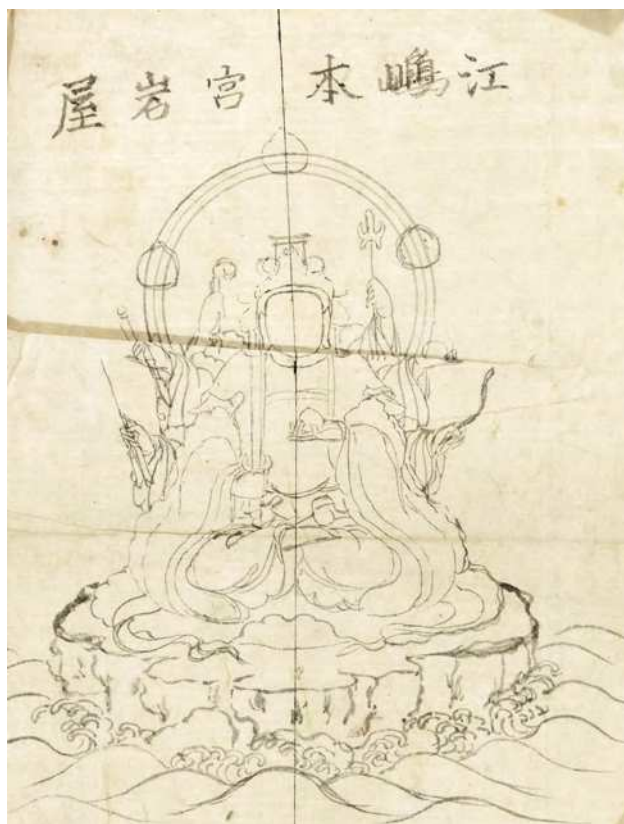 江嶋本宮岩屋